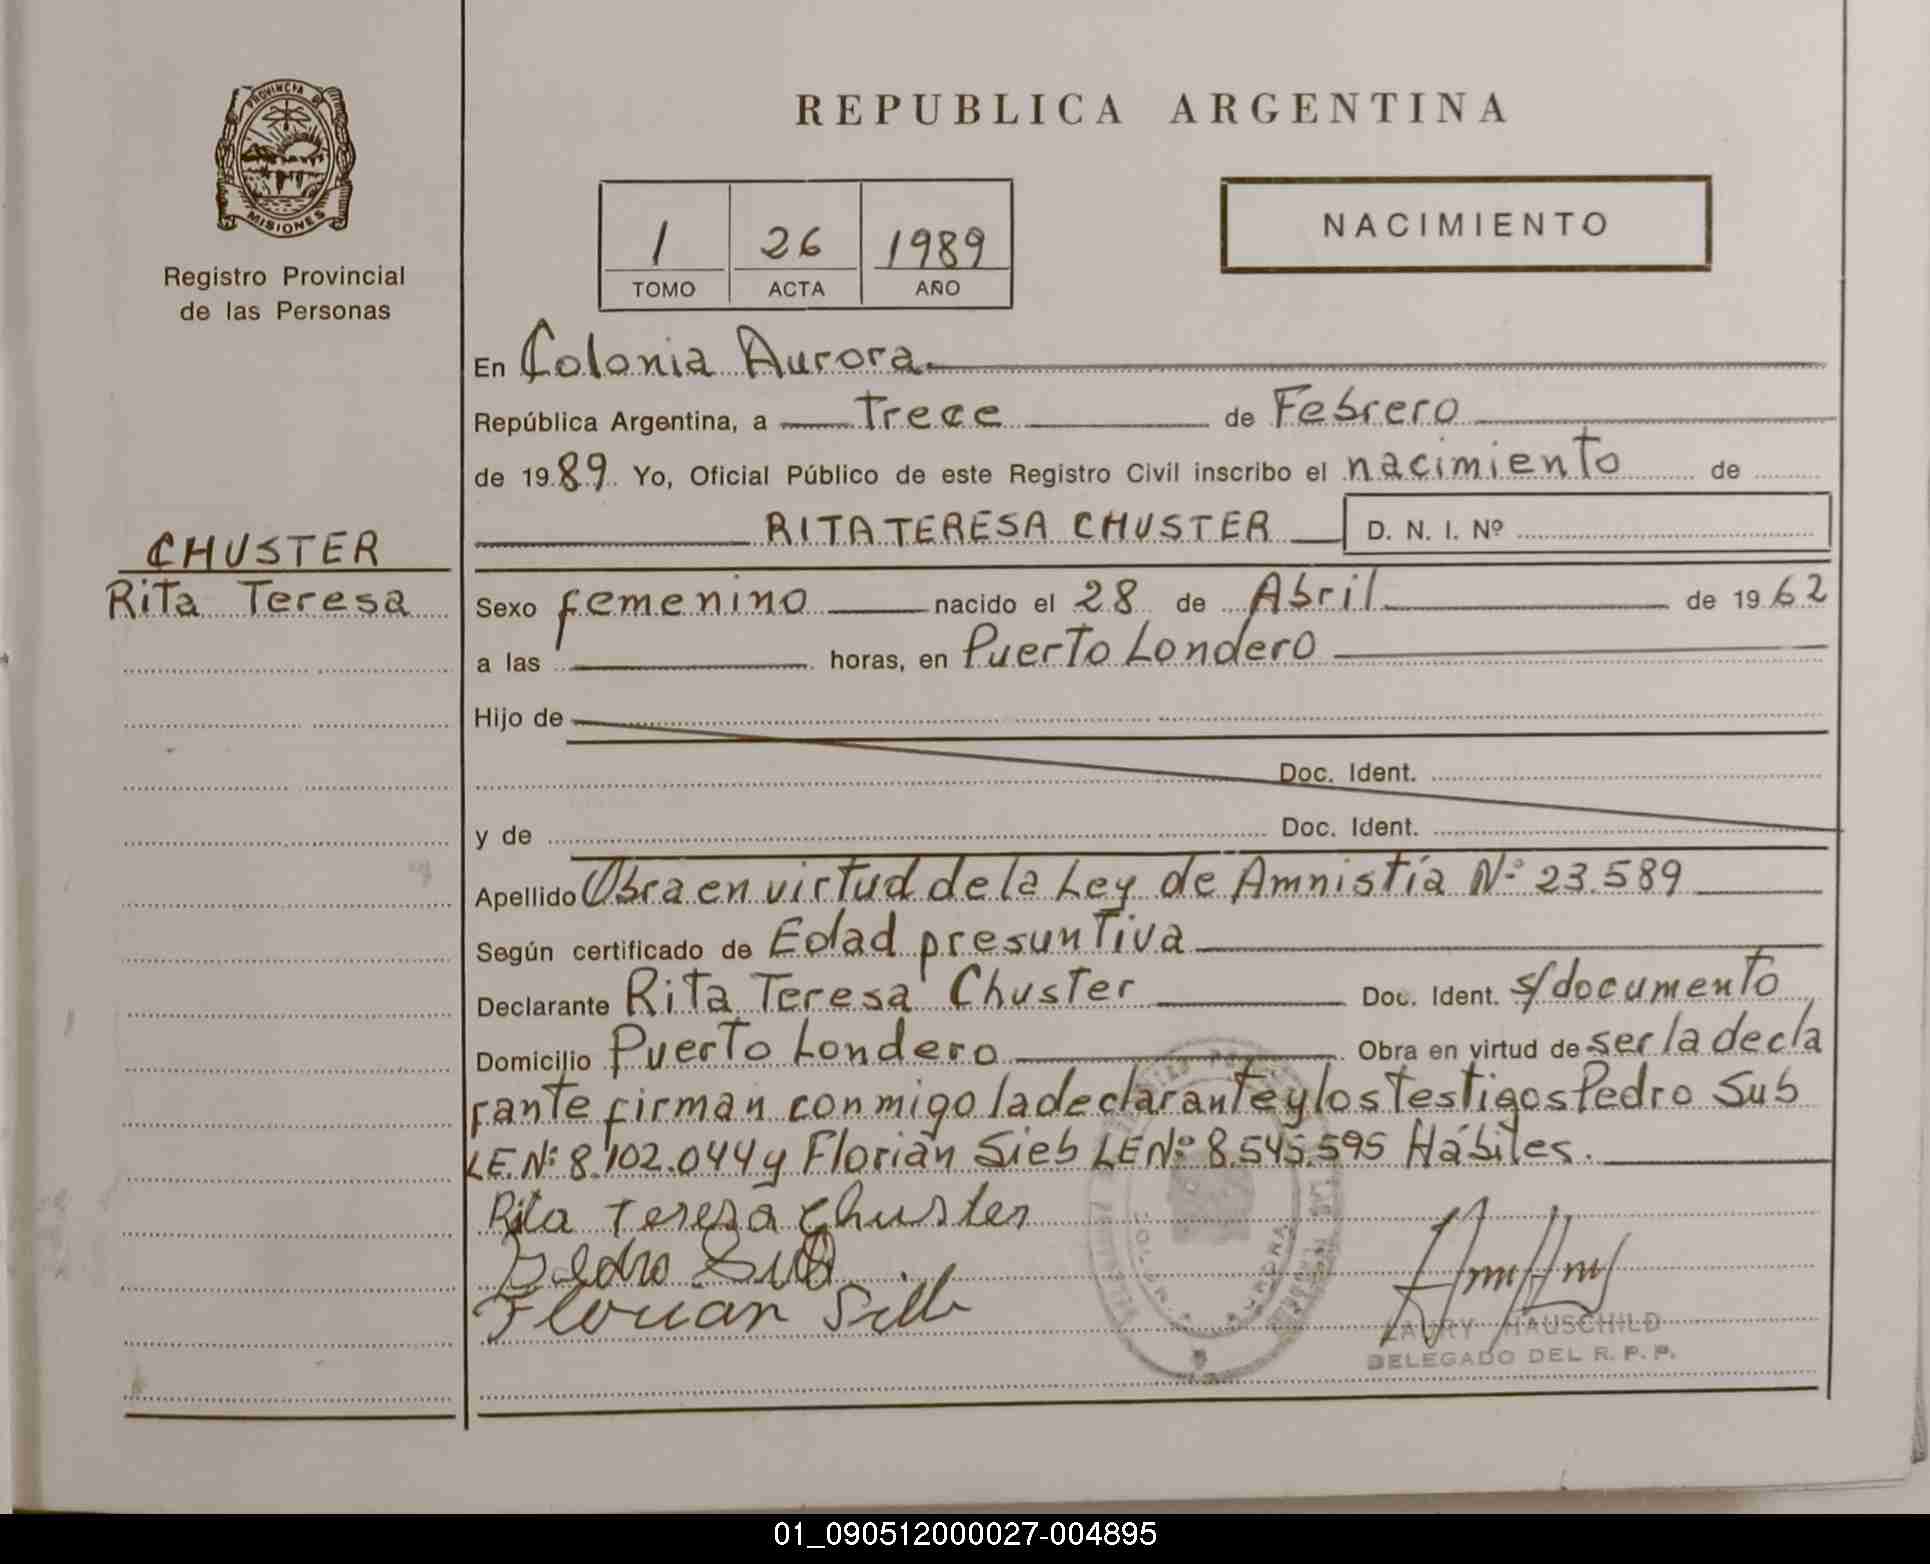 PROVINCIA DE
MISIONES
Registro Provincial
de las Personas
CHUSTER
Rita Teresa
REPUBLICA ARGENTINA
1 26 1989
TOMO ACTA AÑO
NACIMIENTO
En Colonia Aurora
República Argentina, a trece de Febrero
de 1989 Yo, Oficial Público de este Registro Civil inscribo el nacimiento de
RITA TERESA CHUSTER D. N. I. Nº
Sexo femenino nacido el 28 de Abril de 1962
a las horas, en Puerto Londero
Hijo de
Doc. Ident.
y de Doc. Ident.
Apellido Obra en virtud de la Ley de Amnistía Nº 23.589
Según certificado de Edad presuntiva
Declarante Rita Teresa Chuster Doc. Ident. s/documento
Domicilio Puerto Londero Obra en virtud de ser la decla
rante firman conmigo la declarante y los testigos Pedro Sub
LE.Nº 8.102.044 y Florián Sieb LE Nº 8.545.595 Hábiles.
Rita Teresa Chuster
Pedro Sub
Florian Sieb
LAURY HAUSCHILD
DELEGADO DEL R. P. P.
01_090512000027-004895